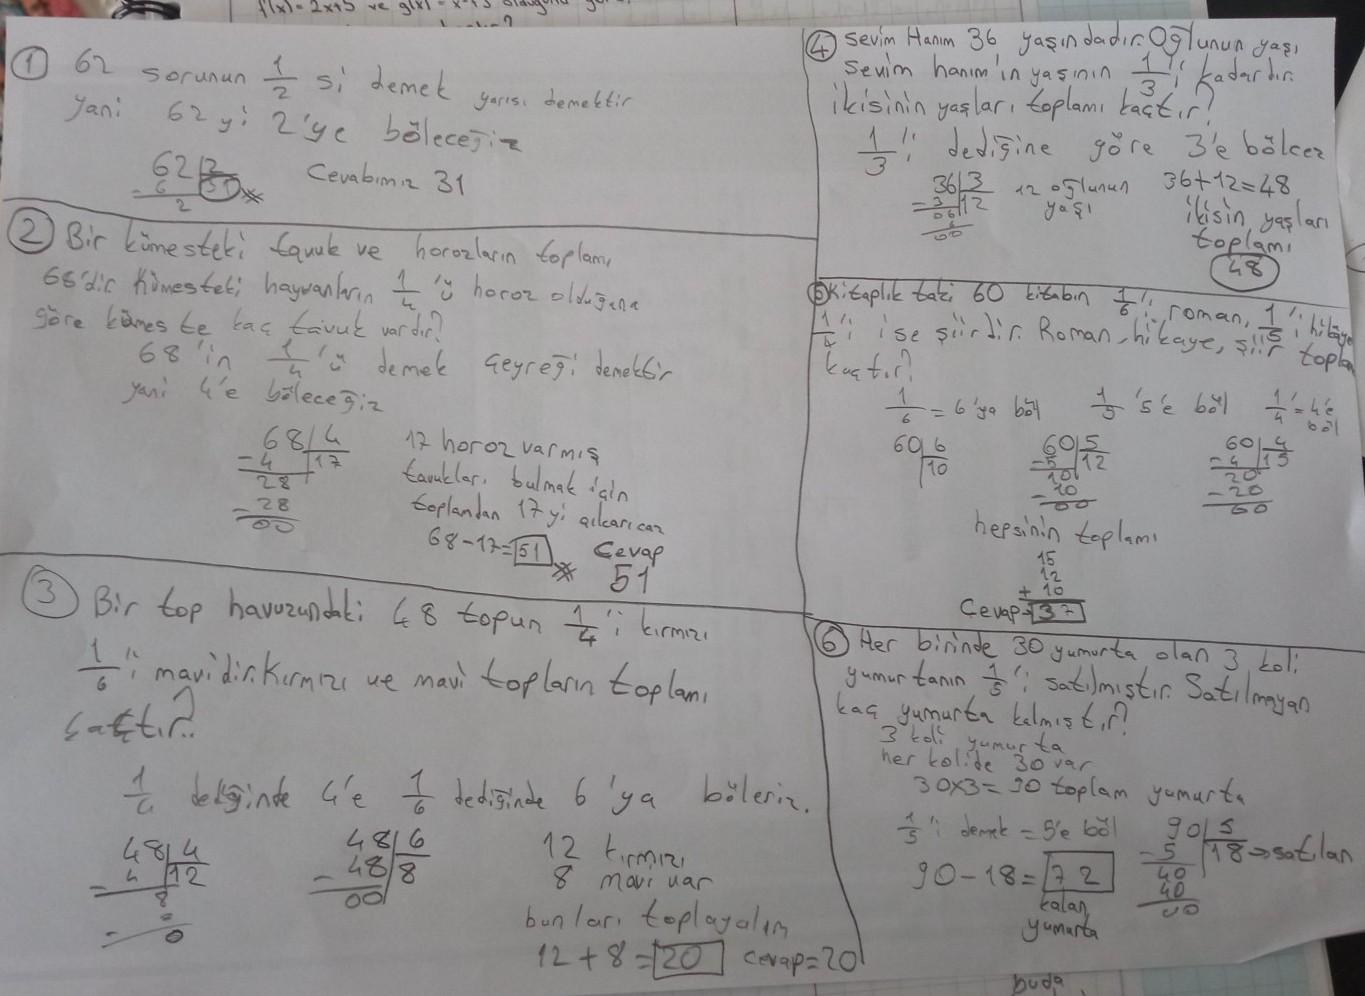 f(x)=2x+5 ve g(x)=x+3
① 62 sorunun 1/2 si demek yarısı demektir
yani 62 yi 2'ye böleceğiz
62 | 2
- 6 | 31
2
Cevabımız 31
② Bir kümesteki tavuk ve horozların toplamı
68'dir Kümesteki hayvanların 1/4 'ü horoz olduğuna
göre kümeste kaç tavuk vardır?
68'in 1/4 'ü demek çeyreği demektir
yani 4'e böleceğiz
68 | 4
- 4 | 17
28
- 28
00
17 horoz varmış
tavukları bulmak için
toplamdan 17 yi çıkarıcaz
68-17= 51
Cevap
51
③ Bir top havuzundaki 48 topun 1/4 'i kırmızı
1/6 'i mavidir. Kırmızı ve mavi topların toplamı
kaçtır?
1/4 dediğinde 4'e 1/6 dediğinde 6'ya böleriz.
48 | 4
- 4 | 12
8
- 0
48 | 6
- 48 | 8
00
12 kırmızı
8 mavi var
bunları toplayalım
12+8= 20 cevap=20
④ Sevim Hanım 36 yaşındadır. Oğlunun yaşı
Sevim hanım'ın yaşının 1/3 'i kadardır.
ikisinin yaşları toplamı kaçtır?
1/3 'i dediğine göre 3'e bölcez
36 | 3
- 3 | 12
06
6
00
12 oğlunun
yaşı
36+12=48
ikisin yaşları
toplamı
48
⑤ Kitaplıktaki 60 kitabın 1/6 'i roman, 1/5 'i hikaye
1/4 'i ise şiirdir. Roman, hikaye, şiir toplam
kaçtır?
1/6 = 6'ya böl 1/5 '5'e böl 1/4 = 4'e böl
60 | 6
10
60 | 5
- 5 | 12
10
- 10
00
60 | 4
- 4 | 15
20
- 20
00
hepsinin toplamı
15
12
+ 10
Cevap= 37
⑥ Her birinde 30 yumurta olan 3 koli
yumurtanın 1/5 'i satılmıştır. Satılmayan
kaç yumurta kalmıştır?
3 koli yumurta
her kolide 30 var
30x3=90 toplam yumurta
1/5 'i demek = 5'e böl
90 | 5
- 5 | 18 => satılan
40
40
00
90-18= 72
kalan
yumurta
buda